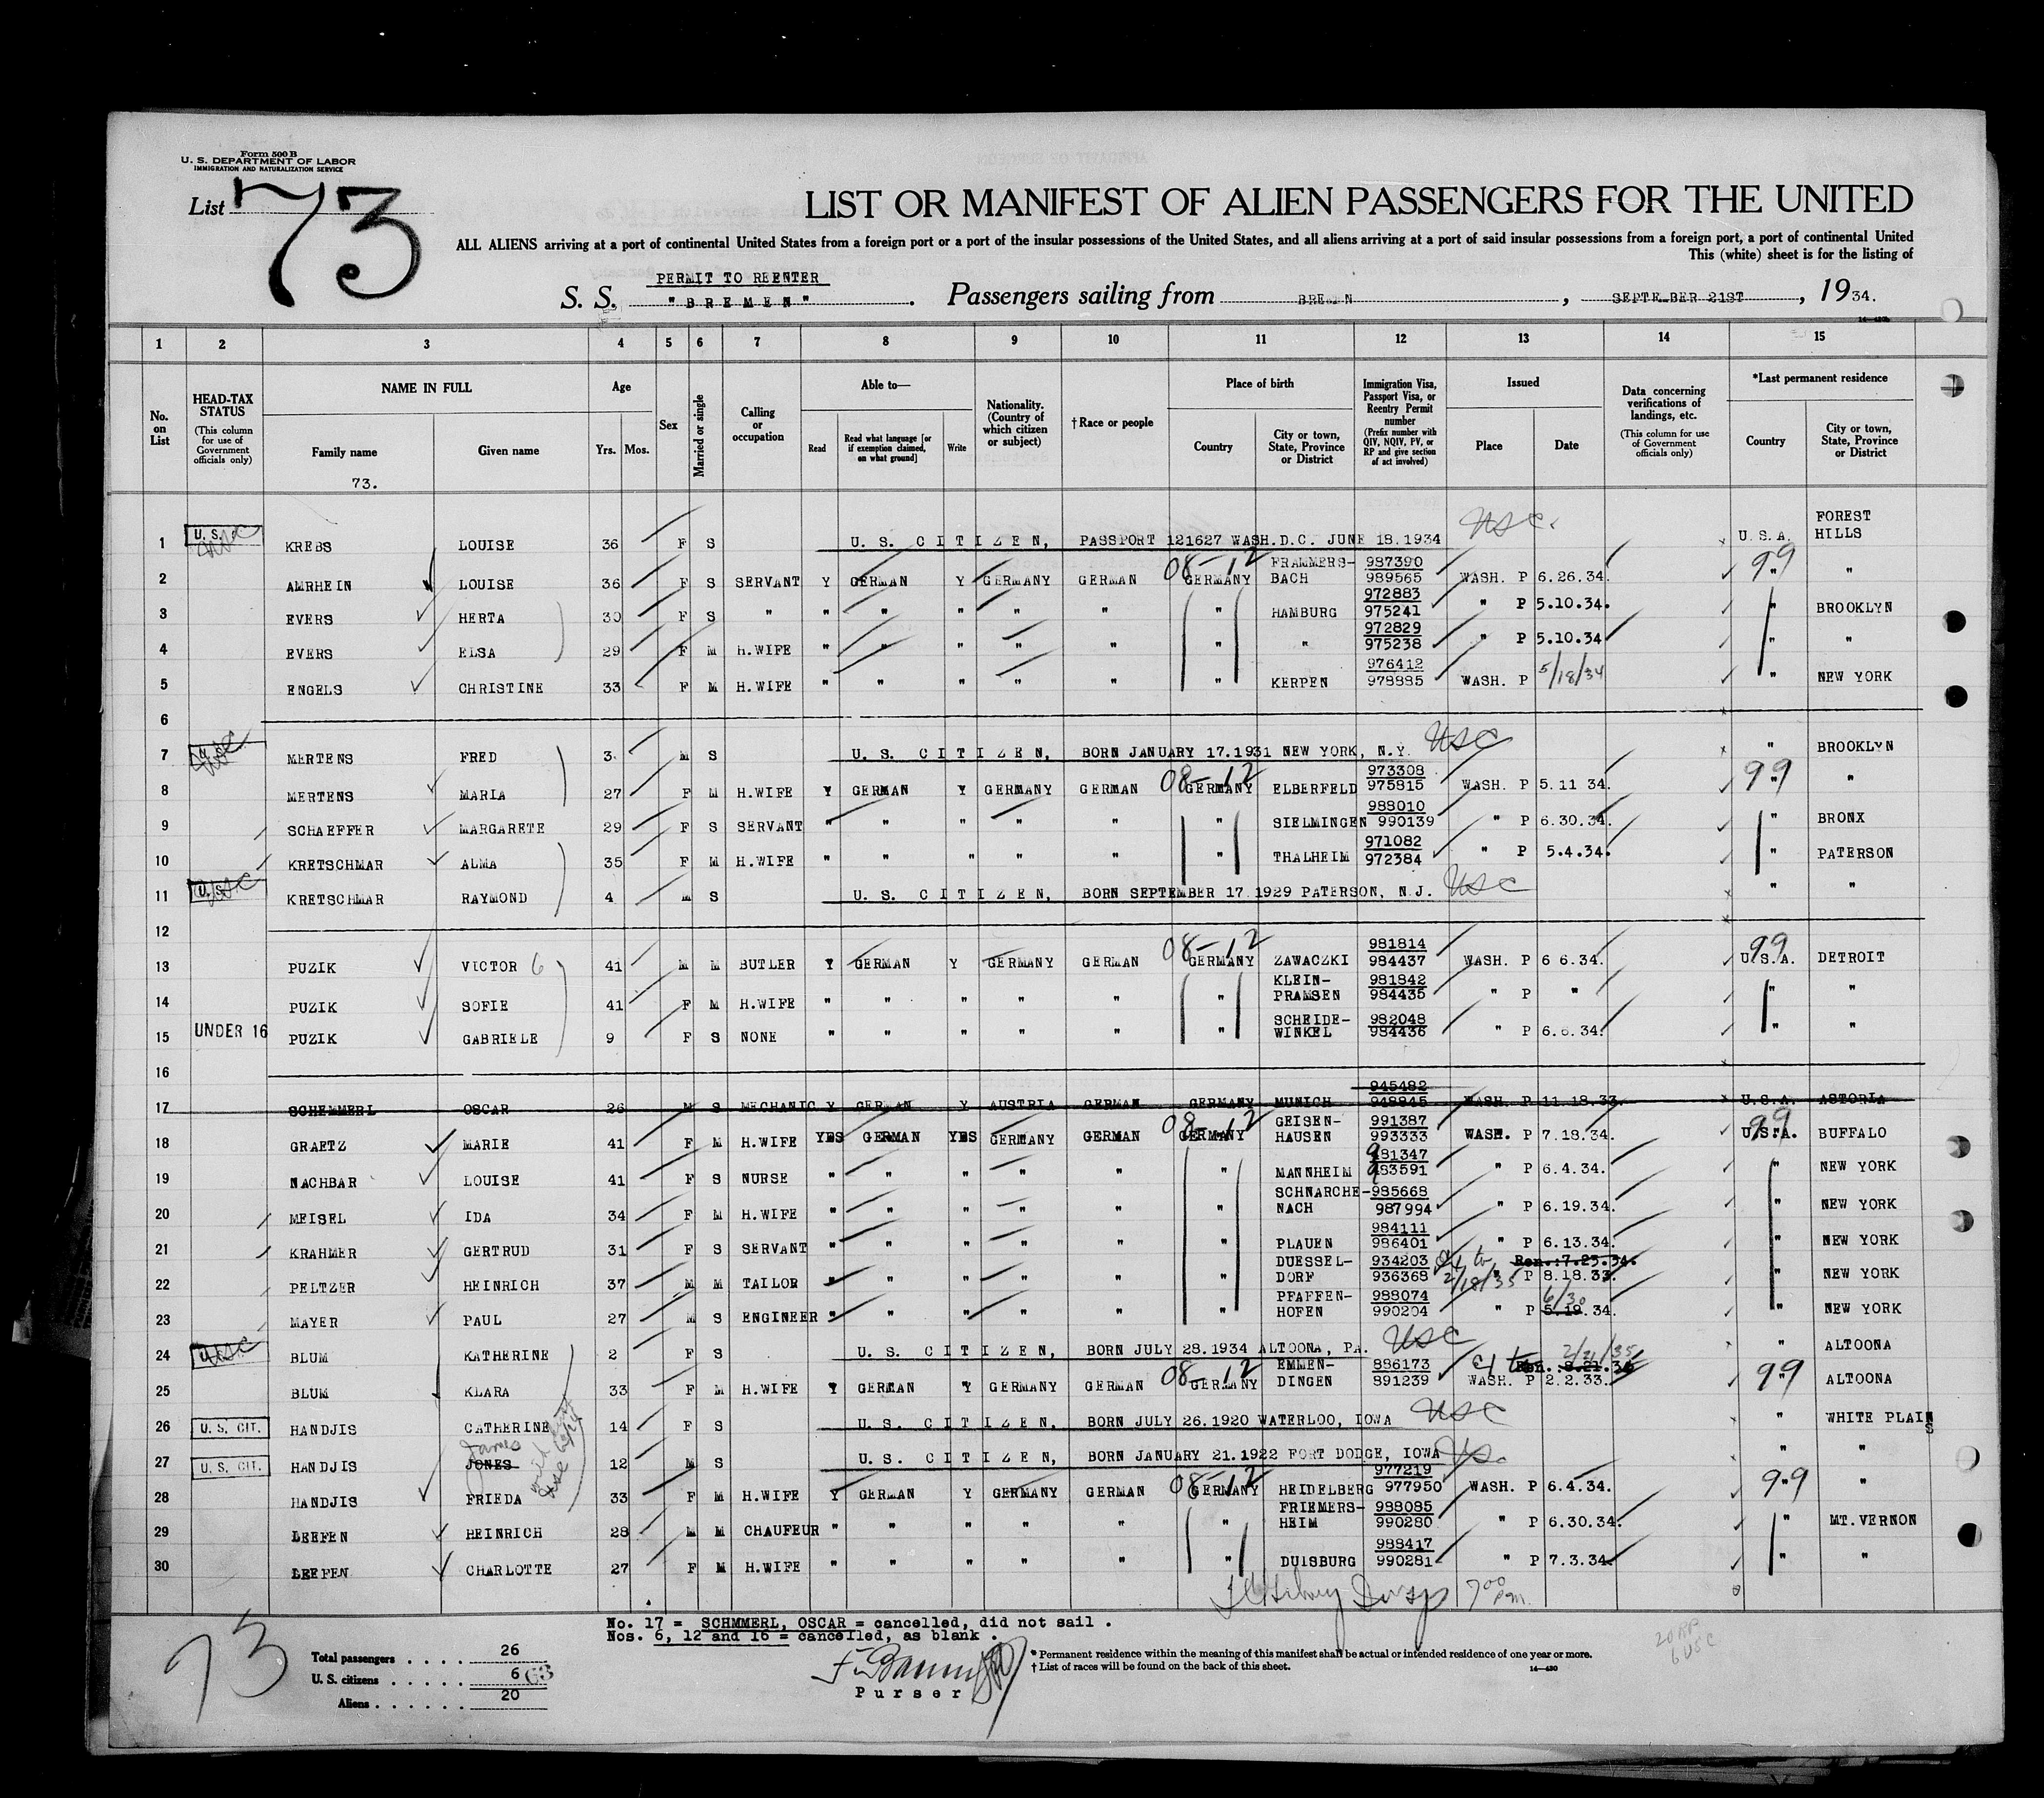 Form 500 B
U. S. DEPARTMENT OF LABOR
IMMIGRATION AND NATURALIZATION SERVICE
List 73
LIST OR MANIFEST OF ALIEN PASSENGERS FOR THE UNITED
ALL ALIENS arriving at a port of continental United States from a foreign port or a port of the insular possessions of the United States, and all aliens arriving at a port of said insular possessions from a foreign port, a port of continental United
This (white) sheet is for the listing of
PERMIT TO REENTER
S. S. "BREMEN". Passengers sailing from BREMEN, SEPTEMBER 21ST, 1934.
1 2 3 4 5 6 7 8 9 10 11 12 13 14 15
No. on List
HEAD-TAX STATUS (This column for use of Government officials only)
NAME IN FULL Family name Given name
73.
Age Yrs. Mos.
Sex
Married or single
Calling or occupation
Able to— Read Read what language [or if exemption claimed, on what ground] Write
Nationality. (Country of which citizen or subject)
† Race or people
Place of birth Country City or town, State, Province or District
Immigration Visa, Passport Visa, or Reentry Permit number (Prefix number with QIV, NQIV, PV, or RP and give section of act involved)
Issued Place Date
Data concerning verifications of landings, etc. (This column for use of Government officials only)
*Last permanent residence Country City or town, State, Province or District
1 U.S. KREBS LOUISE 36 F S U. S. CITIZEN, PASSPORT 121627 WASH.D.C. JUNE 18.1934 USC. U.S.A. FOREST HILLS
2 AMRHEIN LOUISE 36 F S SERVANT Y GERMAN Y GERMANY GERMAN 08-12 GERMANY FRAMMERS-BACH 987390 989565 WASH. P 6.26.34. 99 " "
3 EVERS HERTA 30 F S " " " " " " " HAMBURG 972883 975241 " P 5.10.34. " BROOKLYN
4 EVERS ELSA 29 F M H.WIFE " " " " " " " 972829 975238 " P 5.10.34 " "
5 ENGELS CHRISTINE 33 F M H.WIFE " " " " " " KERPEN 976412 978885 WASH. P 5/18/34 " NEW YORK
6
7 MERTENS FRED 3 M S U. S. CITIZEN, BORN JANUARY 17.1931 NEW YORK, N.Y. USC " BROOKLYN
8 MERTENS MARIA 27 F M H.WIFE Y GERMAN Y GERMANY GERMAN 08-12 GERMANY ELBERFELD 973308 975815 WASH. P 5.11 34. 99 " "
9 SCHAEFFER MARGARETE 29 F S SERVANT " " " " " " SIELMINGEN 988010 990139 " P 6.30.34. " BRONX
10 KRETSCHMAR ALMA 35 F M H.WIFE " " " " " " THALHEIM 971082 972384 " P 5.4.34. " PATERSON
11 U.S. KRETSCHMAR RAYMOND 4 M S U. S. CITIZEN, BORN SEPTEMBER 17.1929 PATERSON, N.J. USC " "
12
13 PUZIK VICTOR 6 41 M M BUTLER Y GERMAN Y GERMANY GERMAN 08-12 GERMANY ZAWACZKI 981814 984437 WASH. P 6 6.34. 99 U.S.A. DETROIT
14 PUZIK SOFIE 41 F M H.WIFE " " " " " " KLEIN-PRAMSEN 981842 984435 " P " " "
15 UNDER 16 PUZIK GABRIELE 9 F S NONE " " " " " " SCHEIDE-WINKEL 982048 984436 " P 6.6.34. " "
16
17 SCHEMMERL OSCAR 26 M S MECHANIC Y GERMAN Y AUSTRIA GERMAN GERMANY MUNICH 945482 948845 WASH. P 11.18.33. U.S.A. ASTORIA
18 GRAETZ MARIE 41 F M H.WIFE YES GERMAN YES GERMANY GERMAN 08-12 GERMANY GEISEN-HAUSEN 991387 993333 WASH. P 7.18.34. 99 U.S.A. BUFFALO
19 NACHBAR LOUISE 41 F S NURSE " " " " " " MANNHEIM 981347 983591 " P 6.4.34. " NEW YORK
20 MEISEL IDA 34 F M H.WIFE " " " " " " SCHNARCHE-NACH 985668 987994 " P 6.19.34. " NEW YORK
21 KRAHMER GERTRUD 31 F S SERVANT " " " " " " PLAUEN 984111 986401 " P 6.13.34. " NEW YORK
22 PELTZER HEINRICH 37 M M TAILOR " " " " " " DUESSEL-DORF 934203 936368 2/18/35 Ren.:7.25.34. " P 8.18.33. " NEW YORK
23 MAYER PAUL 27 M S ENGINEER " " " " " " PFAFFEN-HOFEN 988074 990204 " P 6/30 5.19.34. " NEW YORK
24 USC BLUM KATHERINE 2 F S U. S. CITIZEN, BORN JULY 28.1934 ALTOONA, PA. USC " ALTOONA
25 BLUM KLARA 33 F M H.WIFE Y GERMAN Y GERMANY GERMAN 08-12 GERMANY EMMEN-DINGEN 886173 891239 Ren. 8.21.34 2/21/35 WASH. P 2.2.33. 99 " ALTOONA
26 U.S. CIT. HANDJIS CATHERINE 14 F S U. S. CITIZEN, BORN JULY 26.1920 WATERLOO, IOWA USC " WHITE PLAINS
27 U.S. CIT. HANDJIS JONES James 12 M S U. S. CITIZEN, BORN JANUARY 21.1922 FORT DODGE, IOWA " "
28 HANDJIS FRIEDA 33 F M H.WIFE Y GERMAN Y GERMANY GERMAN 08-12 GERMANY HEIDELBERG 977219 977950 WASH. P 6.4.34. 99 " "
29 LEEFEN HEINRICH 28 M M CHAUFEUR " " " " " " FRIEMERS-HEIM 988085 990280 " P 6.30.34. " MT.VERNON
30 LEEFEN CHARLOTTE 27 F M H.WIFE " " " " " " DUISBURG 988417 990281 " P 7.3.34. " "
Insp 7 00 pm.
No. 17 = SCHMMERL, OSCAR = cancelled, did not sail .
Nos. 6, 12 and 16 = cancelled, as blank .
73
Total passengers . . . . . 26
U. S. citizens . . . . . . 6 63
Aliens . . . . . . 20
Purser
* Permanent residence within the meaning of this manifest shall be actual or intended residence of one year or more.
† List of races will be found on the back of this sheet.
14—430
20 RP
6 USC